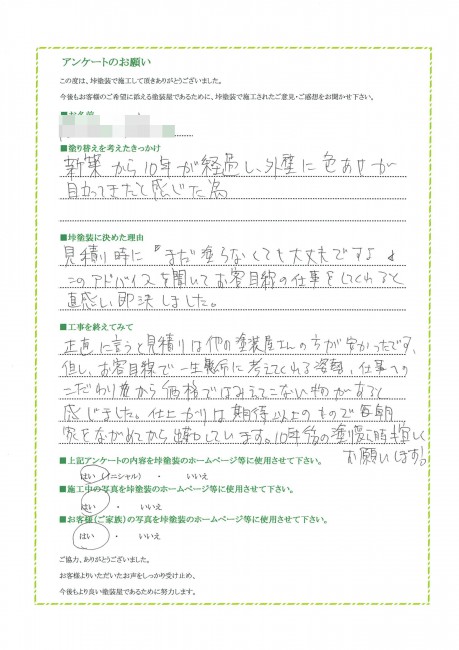 アンケートのお願い
この度は、垰塗装で施工して頂きありがとうございました。
今後もお客様のご希望に添える塗装屋であるために、垰塗装で施工されたご意見・ご感想をお聞かせ下さい。
■お名前
■塗り替えを考えたきっかけ
新築から10年が経過し、外壁に色あせが
目立ってきたと感じた為
■垰塗装に決めた理由
見積り時に『まだ塗らなくても大丈夫ですよ』
このアドバイスを聞いてお客目線の仕事をしてくれると
直感い即決しました。
■工事を終えてみて
正直に言うと見積りは他の塗装屋さんの方が安かったです、
但し、お客目線で一生懸命に考えてくれる姿勢、仕事への
こだわり度から価格ではみえてこない物があると
感じました。仕上がりは期待以上のもので毎朝
家をながめてから出勤しています。10年後の塗り替え時も宜しく
お願いします。
■上記アンケートの内容を垰塗装のホームページ等に使用させて下さい。
はい（イニシャル）・ いいえ
■施工中の写真を垰塗装のホームページ等に使用させて下さい。
はい ・ いいえ
■お客様（ご家族）の写真を垰塗装のホームページ等に使用させて下さい。
はい ・ いいえ
ご協力、ありがとうございました。
お客様よりいただいたお声をしっかり受け止め、
今後もより良い塗装屋であるために努力します。